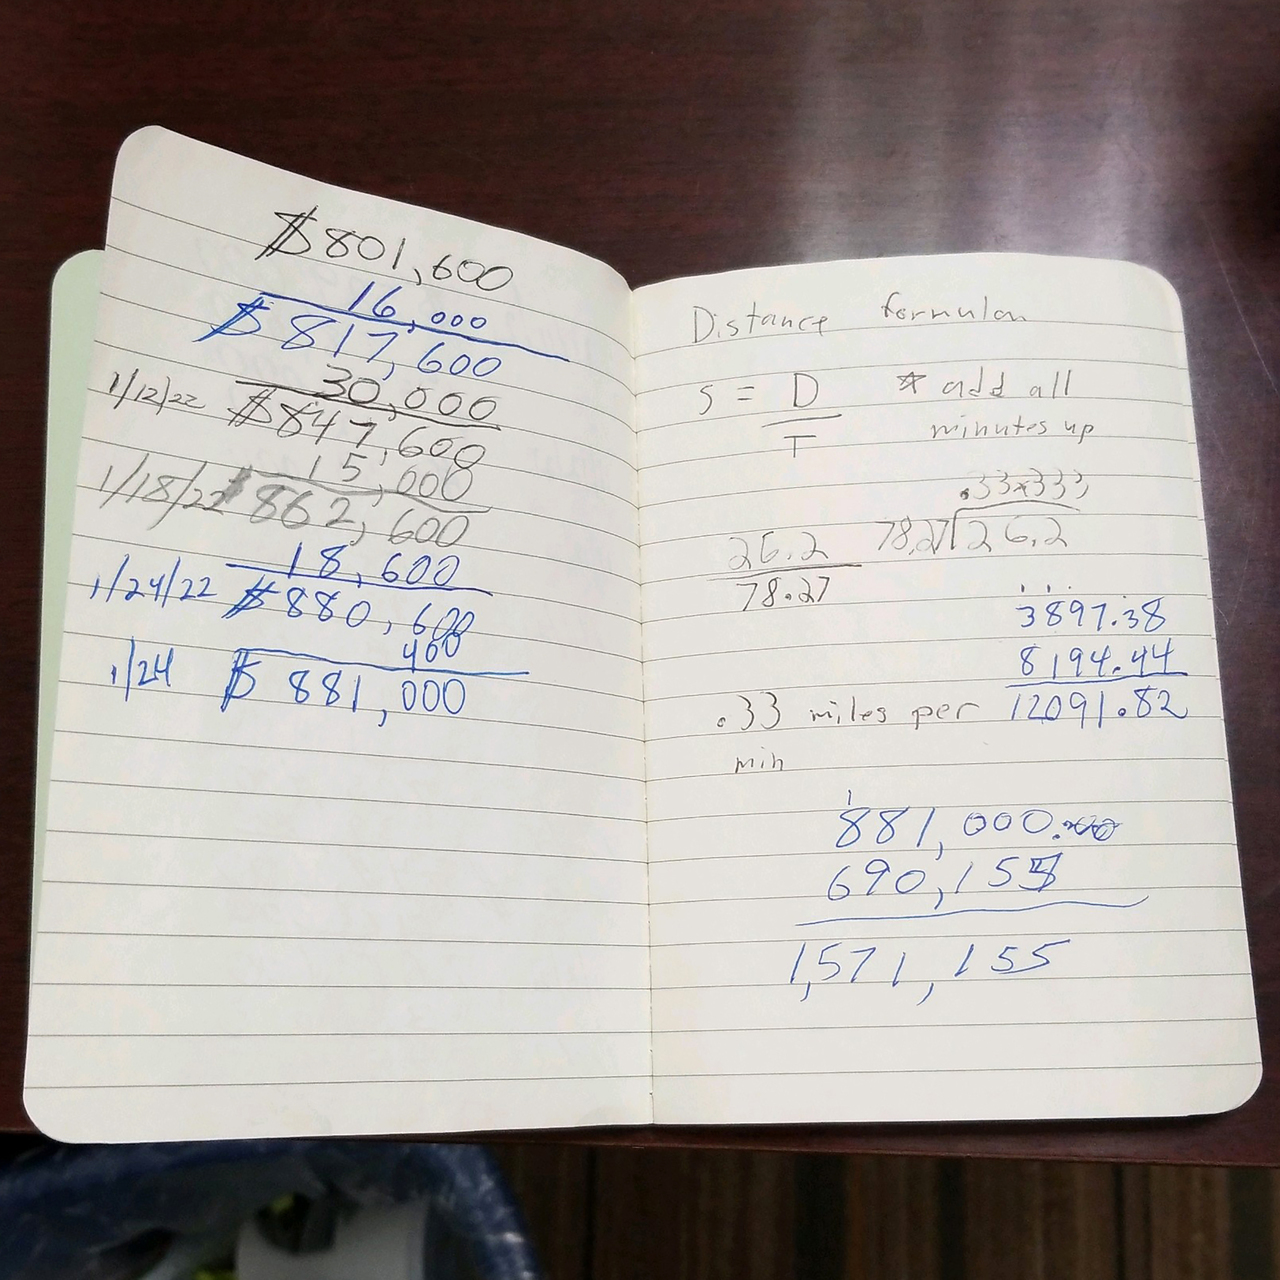 $801,600
16,000
$817,600
30,000
1/12/22 $847,600
15,000
1/18/22 $862,600
18,600
1/24/22 $880,600
400
1/24 $881,000
Distance formulan
S = D * add all
T minutes up
26.2
78.27
78.27 26.2
3897.38
8194.44
.33 miles per 12091.82
min
881,000
690,155
1,571,155